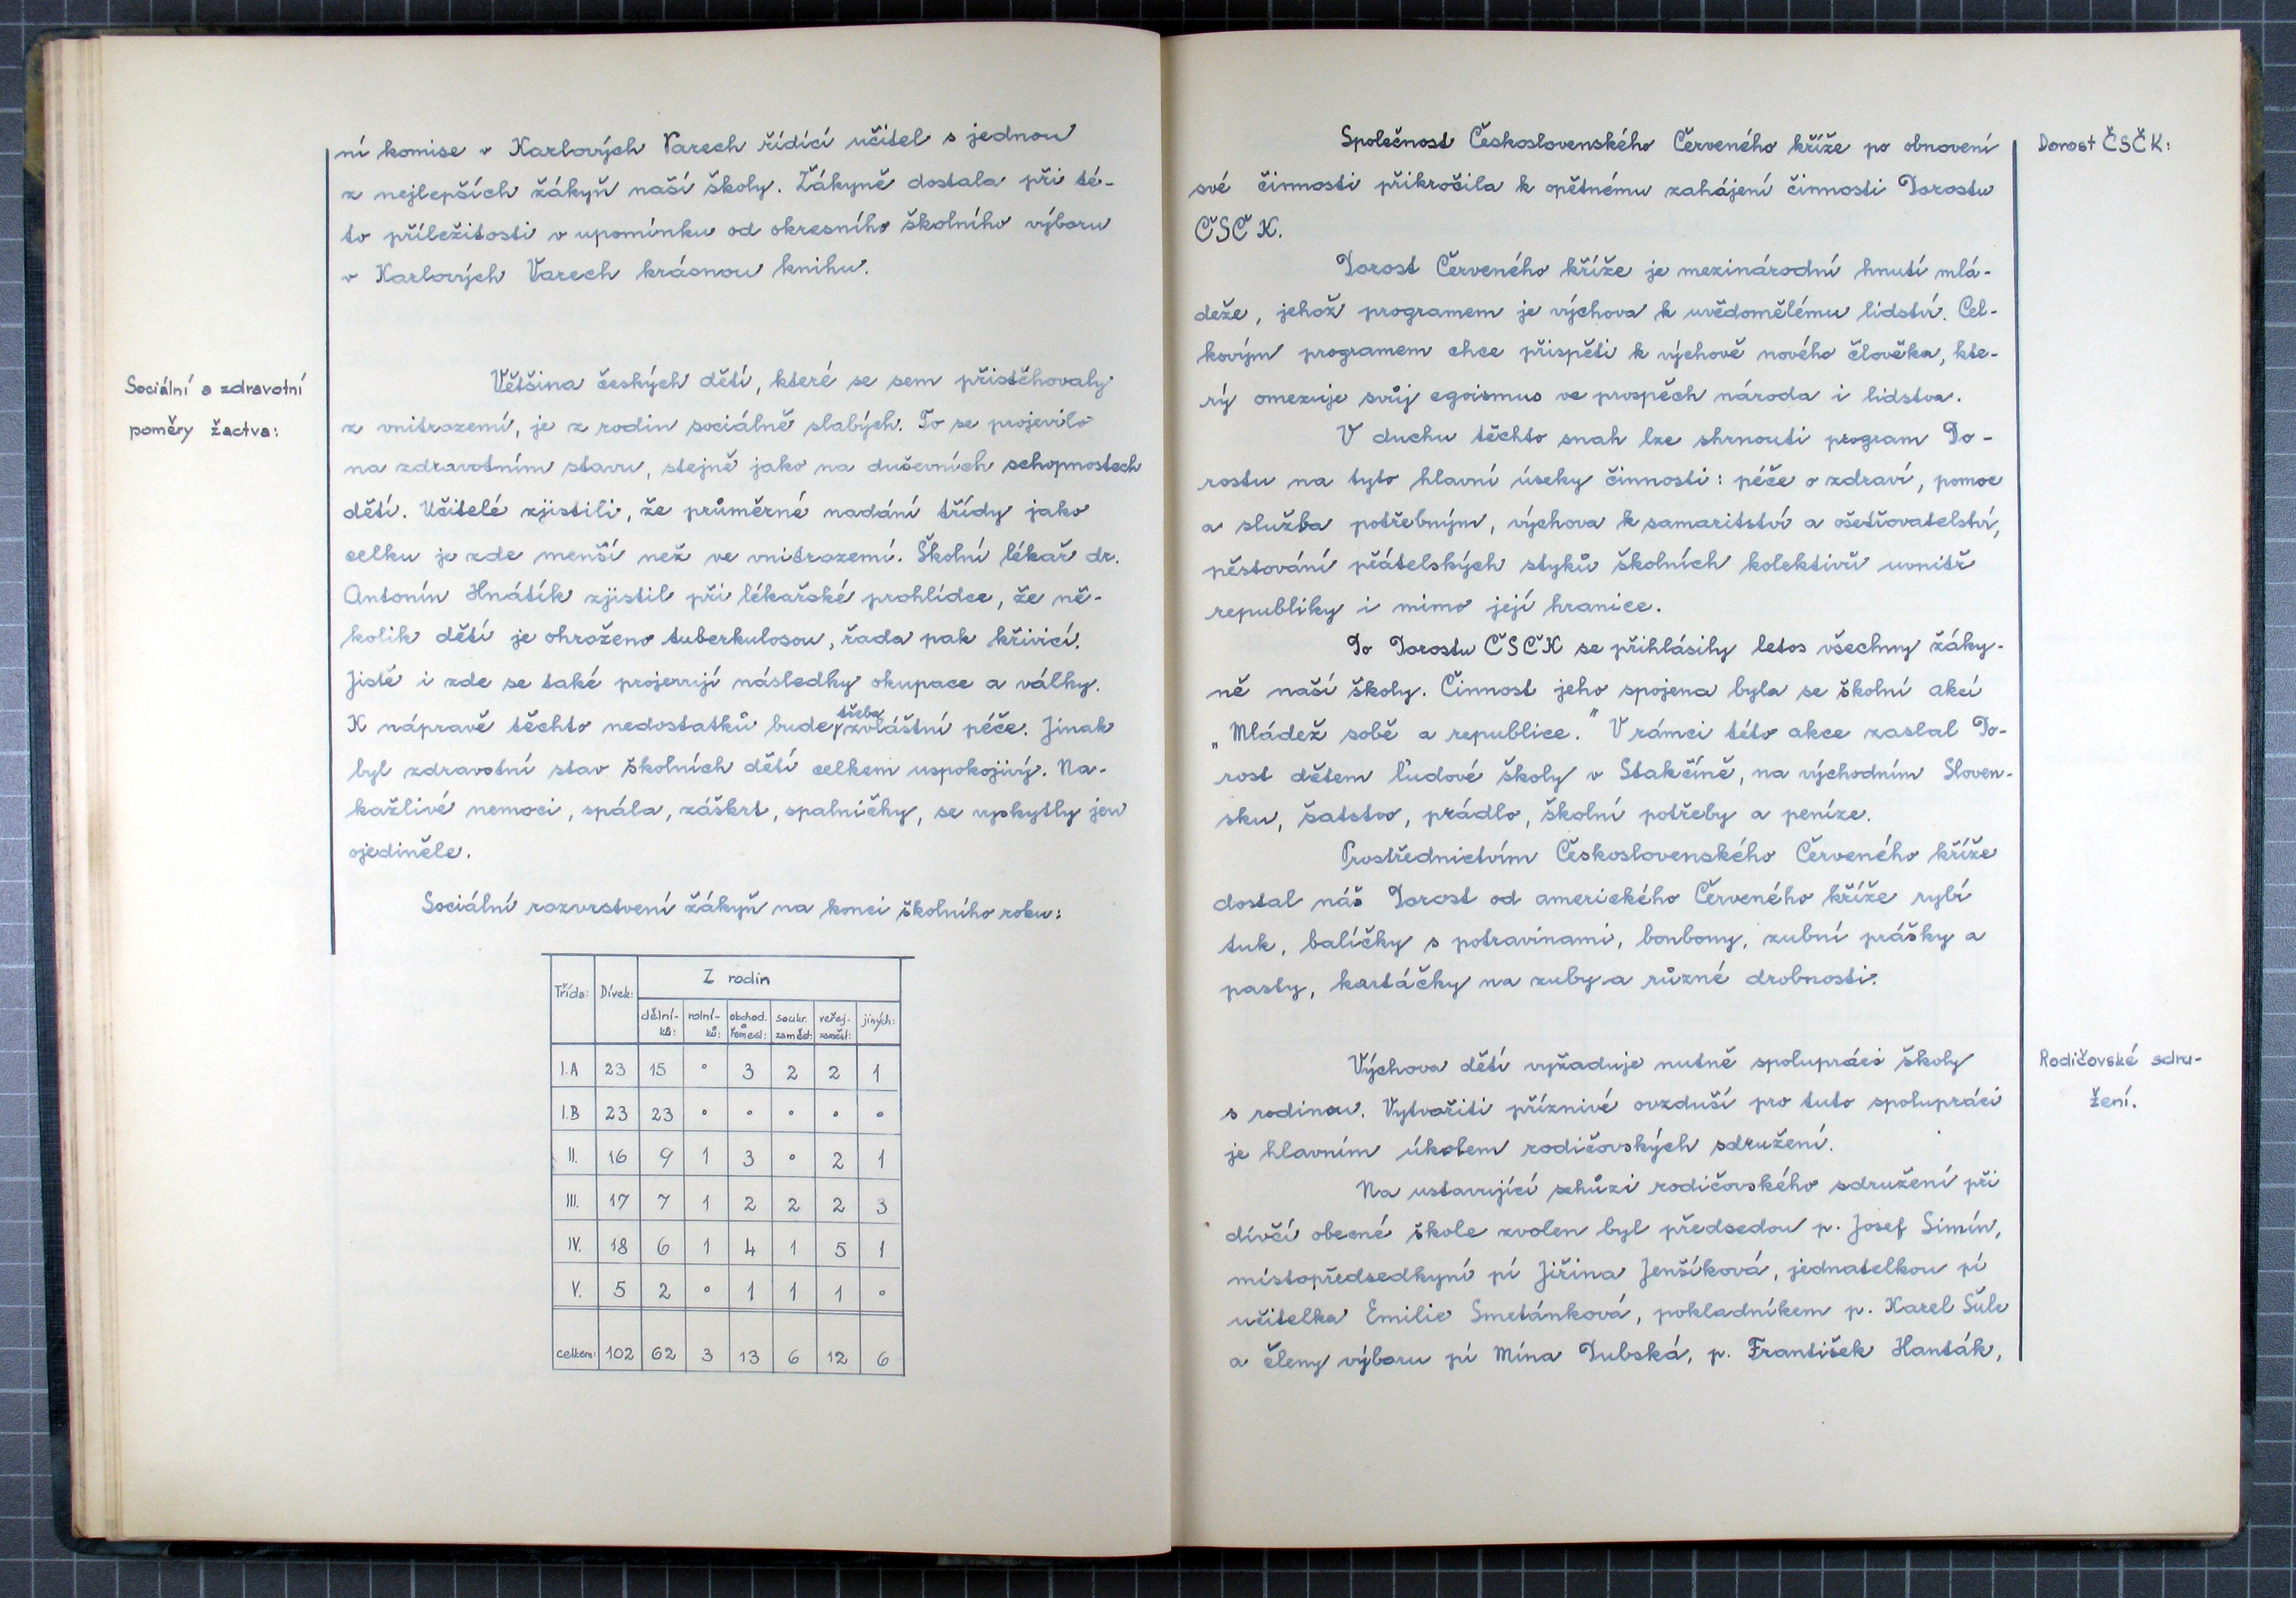 ní komise v Karlových Varech řídící učitel s jednou
z nejlepších žákyň naší školy. Žákyně dostala při té-
to příležitosti v upomínku od okresního školního výboru
v Karlových Varech krásnou knihu.
Sociální a zdravotní
poměry žactva:
Většina českých dětí, které se sem přistěhovaly
z vnitrozemí, je z rodin sociálně slabých. To se projevilo
na zdravotním stavu, stejně jako na duševních schopnostech
dětí. Učitelé zjistili, že průměrné nadání třídy jako
celku je zde menší než ve vnitrozemí. Školní lékař dr.
Antonín Hnátík zjistil při lékařské prohlídce, že ně-
kolik dětí je ohroženo tuberkulosou, řada pak křivicí.
Jistě i zde se také projevují následky okupace a války.
K nápravě těchto nedostatků bude třeba zvláštní péče. Jinak
byl zdravotní stav školních dětí celkem uspokojivý. Na-
kažlivé nemoci, spála, záškrt, spalničky, se vyskytly jen
ojediněle.
Sociální rozvrstvení žákyň na konci školního roku:
Třída: Dívek: Z rodin
dělní-ků: rolní-ků: obchod. řemesl: soukr. zaměst: veřej. zaměst: jiných:
I.A 23 15 ° 3 2 2 1
I.B 23 23 ° ° ° ° °
II. 16 9 1 3 ° 2 1
III. 17 7 1 2 2 2 3
IV. 18 6 1 4 1 5 1
V. 5 2 ° 1 1 1 °
celkem: 102 62 3 13 6 12 6
Dorost ČSČK:
Společnost Československého Červeného kříže po obnovení
své činnosti přikročila k opětnému zahájení činnosti Dorostu
ČSČK.
Dorost Červeného kříže je mezinárodní hnutí mlá-
deže, jehož programem je výchova k uvědomělému lidství. Cel-
kovým programem chce přispěti k výchově nového člověka, kte-
rý omezuje svůj egoismus ve prospěch národa i lidstva.
V duchu těchto snah lze shrnouti program Do-
rostu na tyto hlavní úseky činnosti: péče o zdraví, pomoc
a služba potřebným, výchova k samaritství a ošetřovatelství,
pěstování přátelských styků školních kolektivů uvnitř
republiky i mimo její hranice.
Do Dorostu ČSČK se přihlásily letos všechny žáky-
ně naší školy. Činnost jeho spojena byla se školní akcí
„Mládež sobě a republice." V rámci této akce zaslal Do-
rost dětem ľudové školy v Stakčíně, na východním Sloven-
sku, šatstvo, prádlo, školní potřeby a peníze.
Prostřednictvím Československého Červeného kříže
dostal náš Dorost od amerického Červeného kříže rybí
tuk, balíčky s potravinami, bonbony, zubní prášky a
pasty, kartáčky na zuby a různé drobnosti.
Rodičovské sdru-
žení.
Výchova dětí vyžaduje nutně spolupráci školy
s rodinou. Vytvořiti příznivé ovzduší pro tuto spolupráci
je hlavním úkolem rodičovských sdružení.
Na ustavující schůzi rodičovského sdružení při
dívčí obecné škole zvolen byl předsedou p. Josef Simín,
místopředsedkyní pí Jiřina Jenšíková, jednatelkou pí
učitelka Emilie Smetánková, pokladníkem p. Karel Šůle
a členy výboru pí Mína Dubská, p. František Hanták,